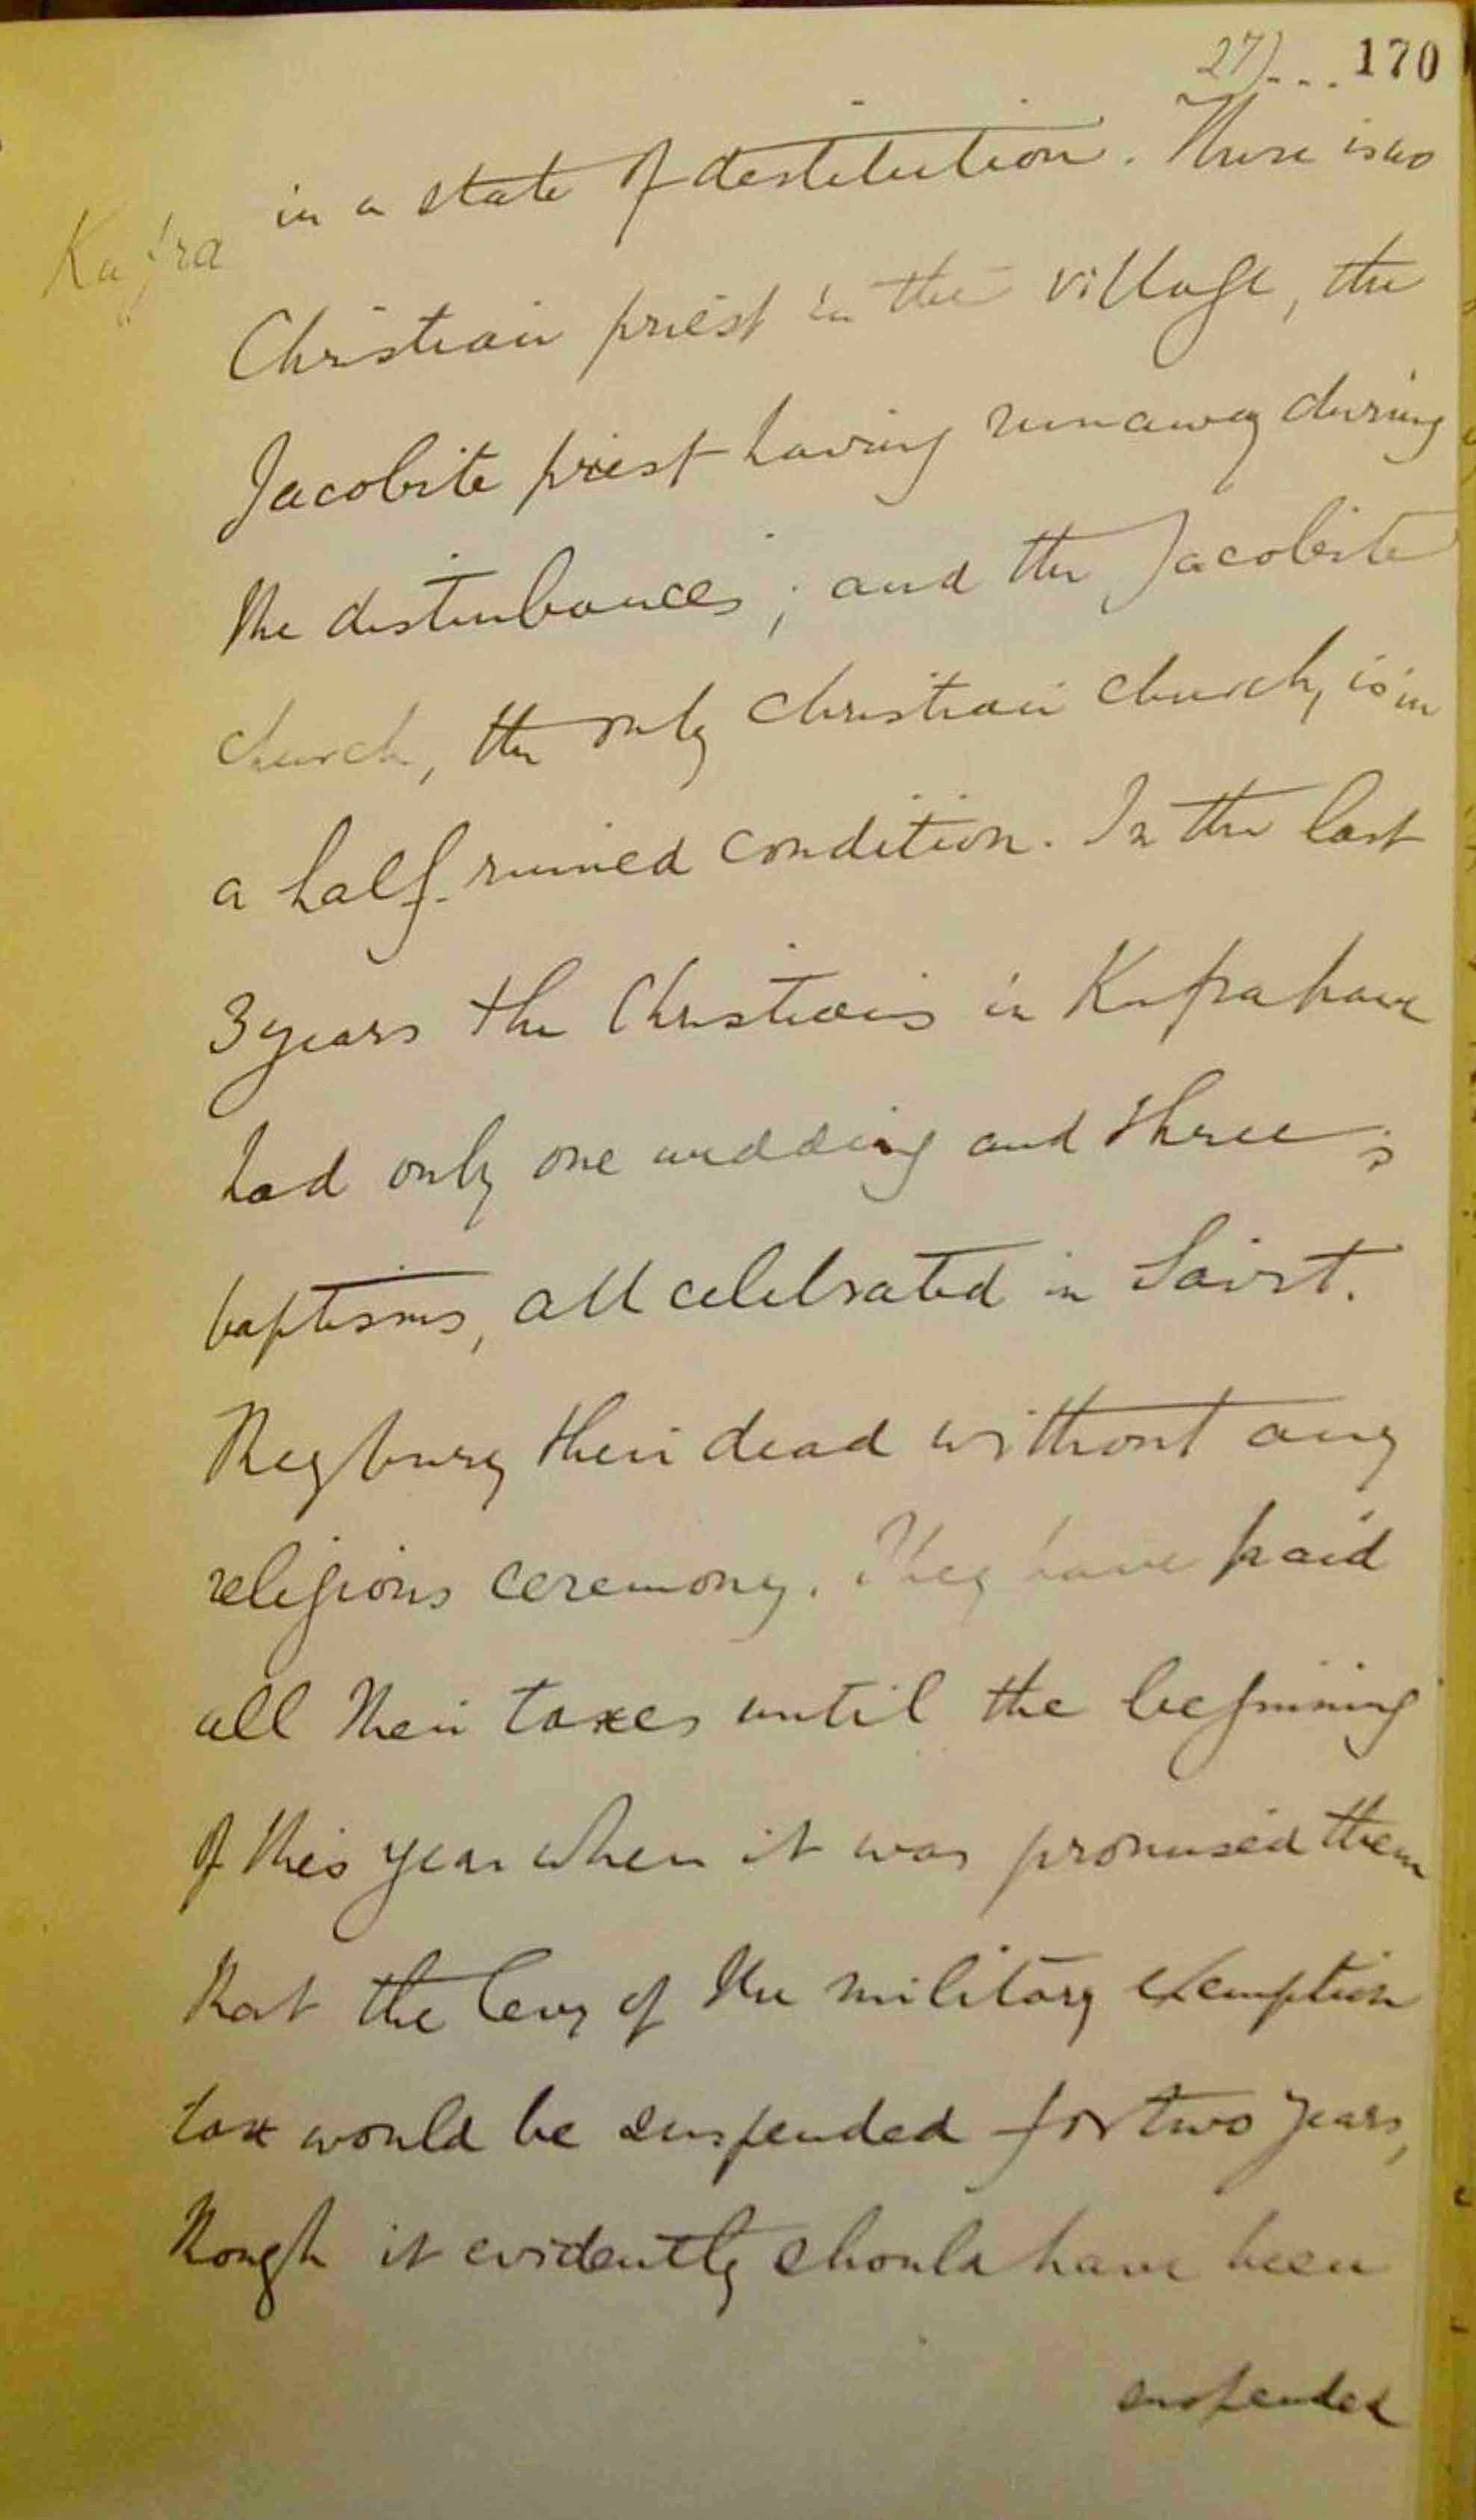 27)... 170
Kafra
in a state of destitution. There is no
Christian priest in the village, the
Jacobite priest having runaway during
the disturbances; and the Jacobite
church, the only Christian church, is in
a half-ruined condition. In the last
3 years the Christians in Kafra have
had only one wedding and three
baptisms, all celebrated in Sairt.
They bury their dead without any
religious ceremony. They have paid
all their taxes until the beginning
of this year when it was promised them
that the levy of the military exemption
tax would be suspended for two years,
though it evidently should have been
suspended